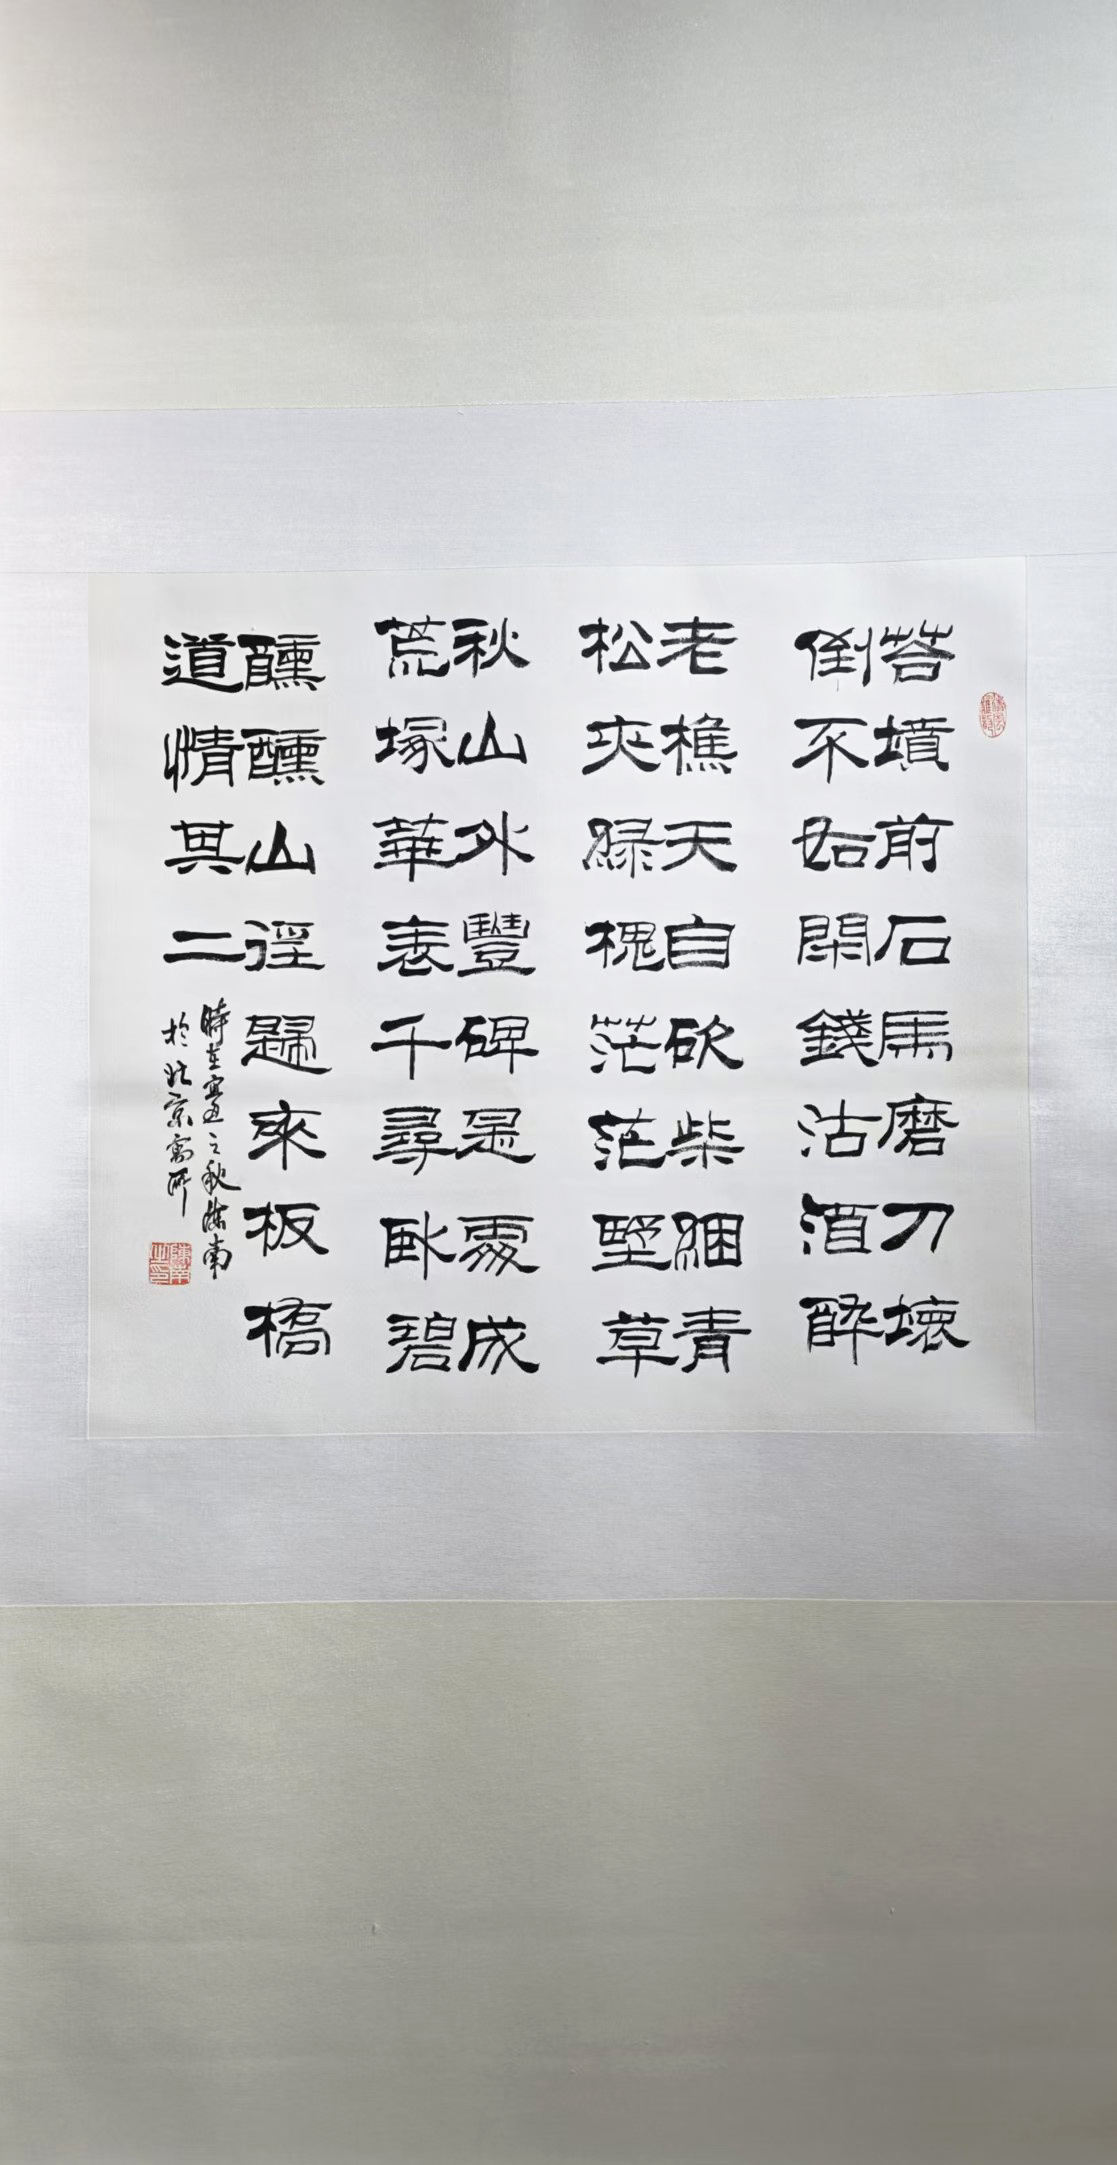 苔墳前石馬磨刀壞
倒不如閑錢沽酒醉
老樵天自砍柴綑青
松夾綠槐茫茫墅草
秋山外豐碑是處成
荒塚華表千尋臥碧
醺醺山徑歸來板橋
道情其二
時在丑之秋陳南
於北京寓所
陳南之印